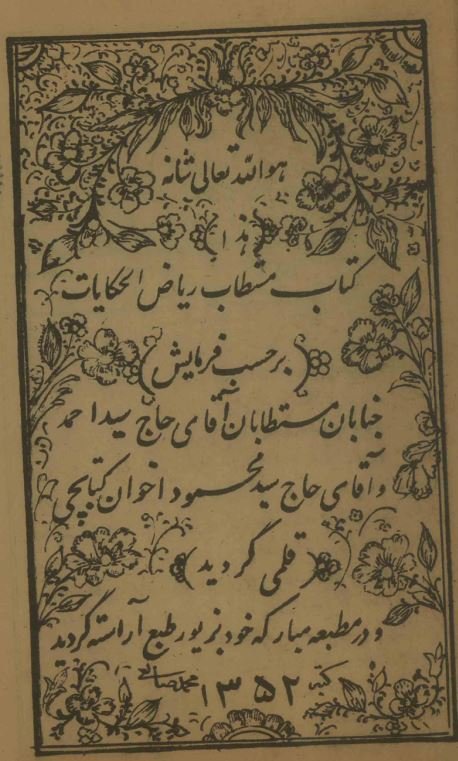 هوالله تعالی شانه
(هذا)
کتاب مستطاب ریاض الحکایات
(برحسب فرمایش)
جنابان مستطابان آقای حاج سید احمد
و آقای حاج سید محمود اخوان کتابچی
(قلمی گردید)
و در مطبعه مبارکه خود بزیور طبع آراسته گردید
۱۳۵۲